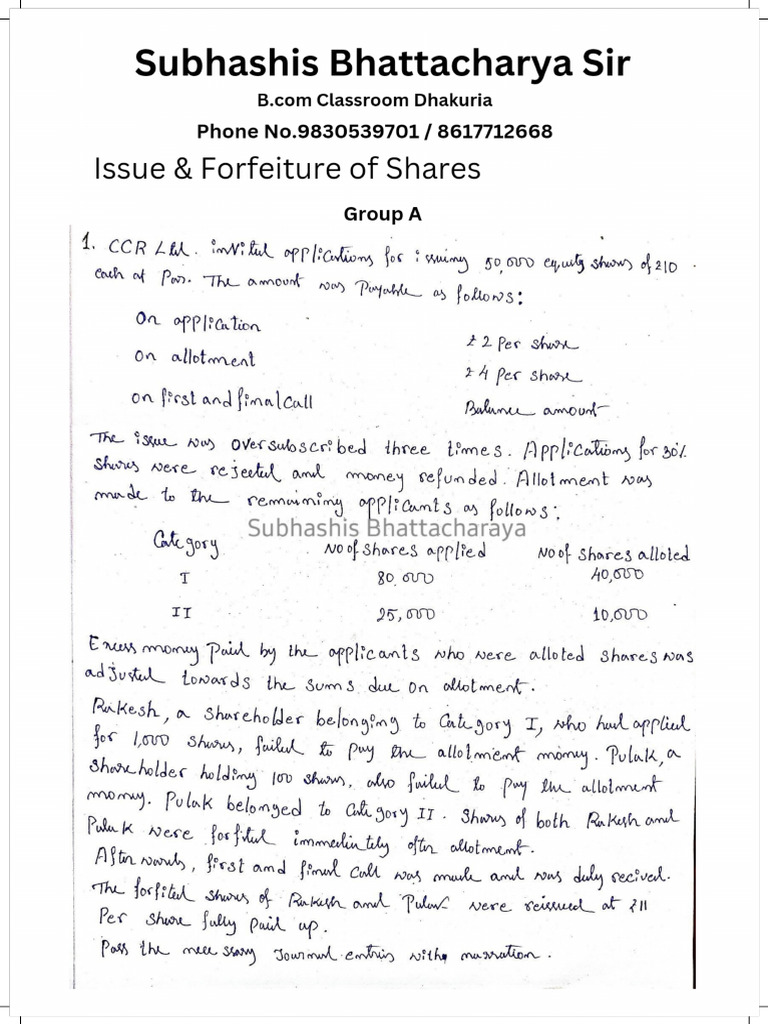 Subhashis Bhattacharya Sir
B.com Classroom Dhakuria
Phone No.9830539701 / 8617712668
Issue & Forfeiture of Shares
Group A
1. CCR Ltd. invited applications for issuing 50,000 equity shares of ₹10
each at Par. The amount was Payable as follows:
On application ₹2 Per share
On allotment ₹4 Per share
On first and final call Balance amount
The issue was oversubscribed three times. Applications for 30%
shares were rejected and money refunded. Allotment was
made to the remaining applicants as follows:
Subhashis Bhattacharaya
Category No of shares applied No of shares alloted
I 80,000 40,000
II 25,000 10,000
Excess money paid by the applicants who were alloted shares was
adjusted towards the sums due on allotment.
Rakesh, a shareholder belonging to Category I, who had applied
for 1,000 shares, failed to pay the allotment money. Pulak, a
shareholder holding 100 shares, also failed to pay the allotment
money. Pulak belonged to Category II. Shares of both Rakesh and
Pulak were forfited immediately after allotment.
After wards, first and final call was made and was duly recived.
The forfited shares of Rakesh and Pulak were reissued at ₹11
Per share fully paid up.
Pass the necessary Journal entries with narration.